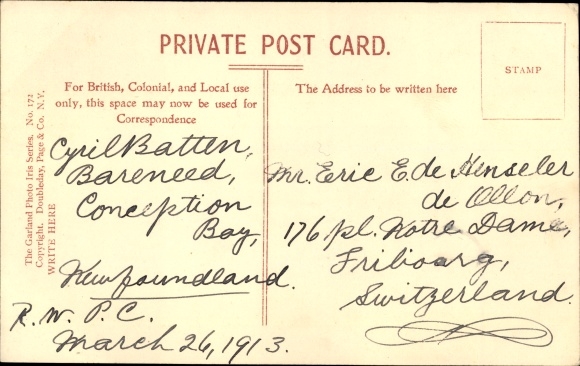 PRIVATE POST CARD.
For British, Colonial, and Local use
only, this space may now be used for
Correspondence
The Address to be written here
STAMP
The Garland Photo Iris Series. No. 172
Copyright, Doubleday, Page & Co. N.Y.
WRITE HERE
Cyril Batten,
Bareneed,
Conception
Bay,
Newfoundland.
R. W. P. C.
March 26, 1913.
Mr. Eric E. de Henseler
de Ollon,
176 pl. Notre Dame,
Fribourg,
Switzerland.